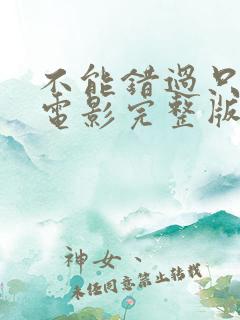 不能错過只
電影完整版
神女、
未经同意禁止转载